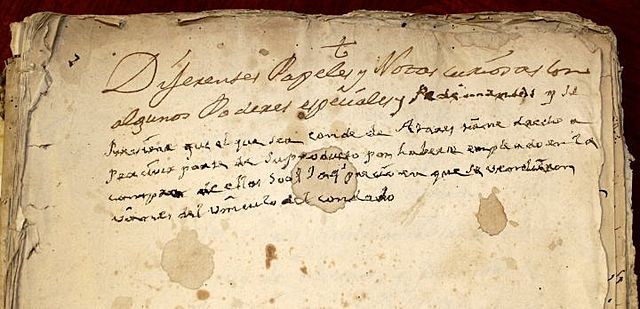 Diferenses Papeles y Notas curiosas con
algunos Poderes especiales y y se
previene que el que sea conde de tiene drecho a
Percivir parte de su producto por haberse empleado en la
compra de ellos 500 en que se vendieron
vienes del vinculo del condado